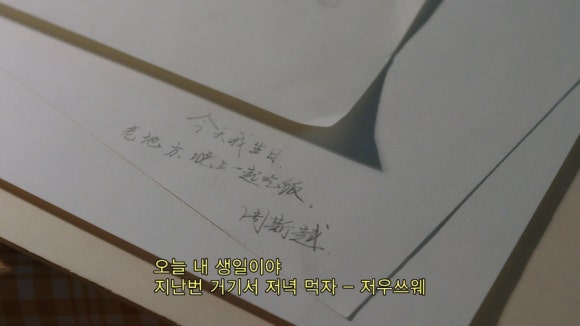 今天我生日,
老地方.晚上一起吃饭,
周斯越
오늘 내 생일이야
지난번 거기서 저녁 먹자 – 저우쓰웨